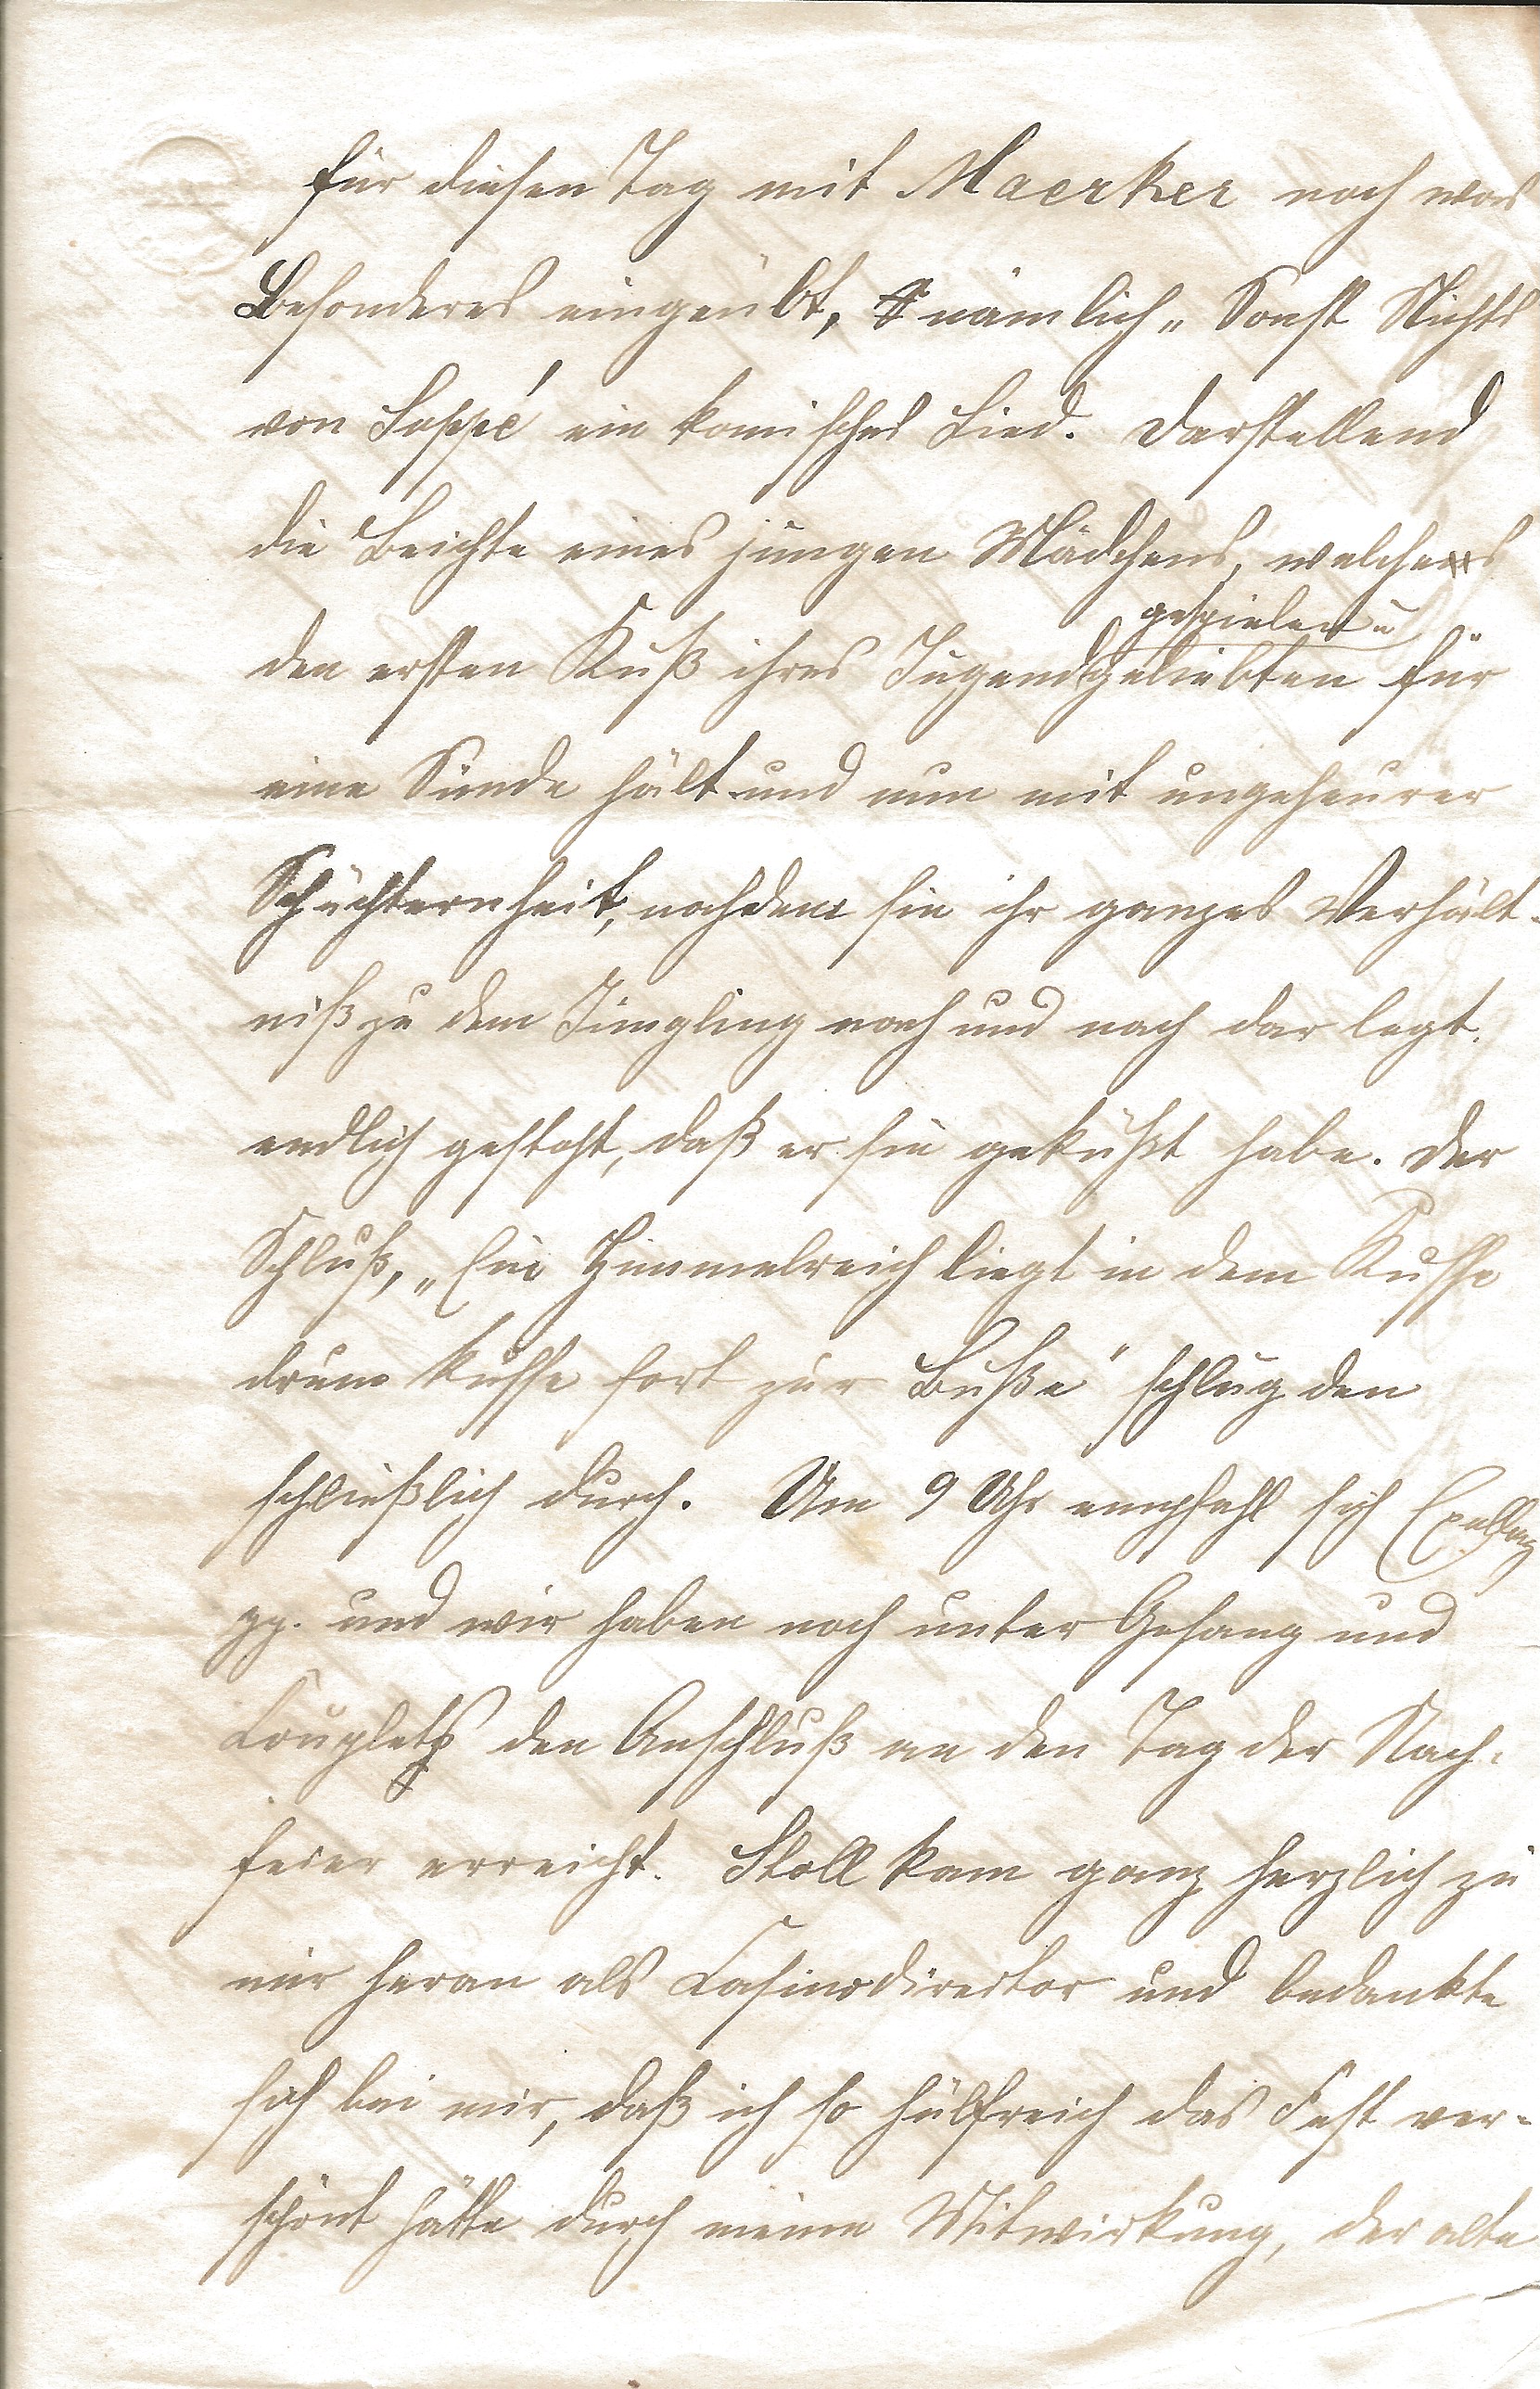 für diesen Tag mit Maerker noch was
Besonderes eingeübt, nämlich „Sonst Nichts
von Soppé ein komisches Lied. Darstellend
die Beichte eines jungen Mädchens, welches
gespielen u
den ersten Kuß ihres Jugendgeliebten für
eine Sünde hält und nun mit ungeheurer
Schüchternheit, nachdem sie ihr ganzes Verhält-
niß zu dem Jüngling nach und nach dar legt.
endlich gesteht, daß er sie geküßt habe. Der
Schluß, „Ein Himmelreich liegt in dem Kusse
drum küsse fort zur Buße" schlug den
schließlich durch. Um 9 Uhr empfahl sich Excellenz
pp. und wir haben noch unter Gesang und
Couplets den Anschluß an den Tag der Nach-
feier erreicht. Stoll kam ganz herzlich zu
mir heran als Casinodirector und bedankte
sich bei mir, daß ich so hülfreich das Fest ver-
schönt hätte durch meine Mitwirkung, der alte